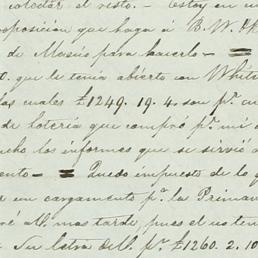 el resto. — Estoy en un
oposicion que haga á B. W.
de Masús para hacerlo — =
que le tenia abierto con Whit
las cuales £1249. 19. 4. son pr. cu
de loteria que compró pr. mi
cho los informes que se sirvió
ento — = Quedo impuesto de lo q
un cargamento pa. la Prima
mas tarde pues el
Su letra de pr. £1260. 2. 10